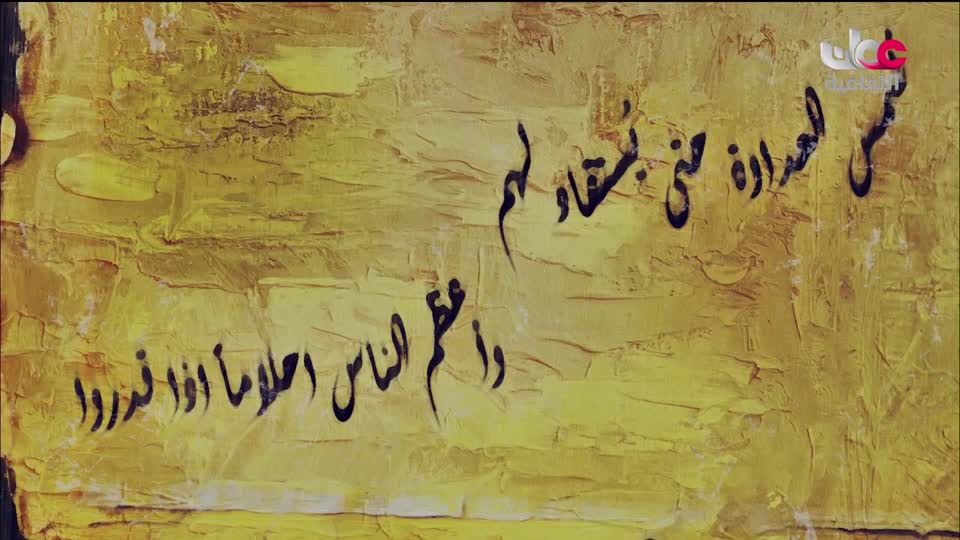 عمان
الثقافية
شمس العداوة حتى يستقاد لهم
وأعظم الناس احلاماً اذا قدروا